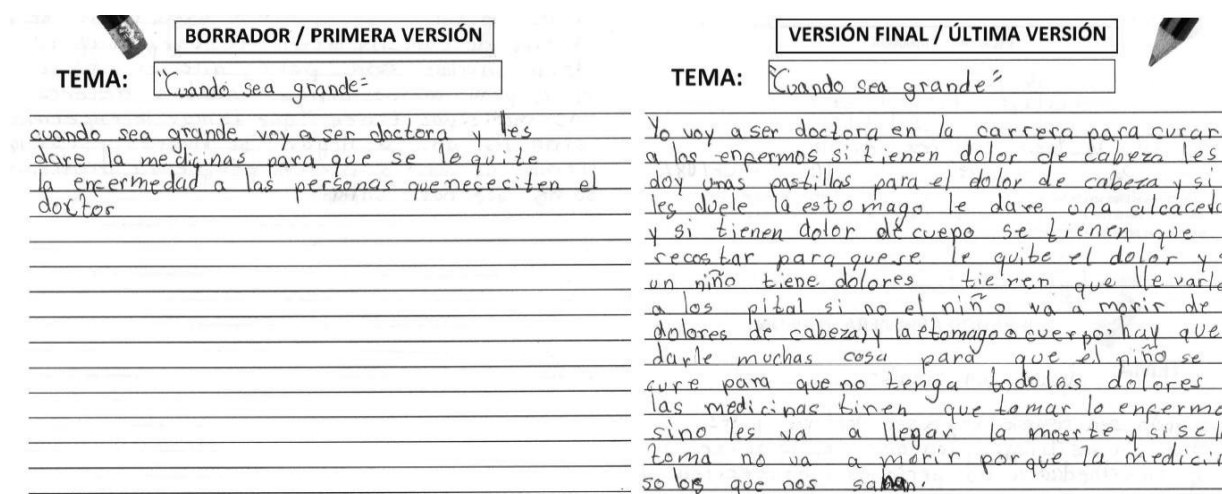 BORRADOR / PRIMERA VERSIÓN
TEMA: "Cuando sea grande"
cuando sea grande voy a ser doctora y les
dare la medicinas para que se le quite
la enfermedad a las personas que nececiten el
doctor
VERSIÓN FINAL / ÚLTIMA VERSIÓN
TEMA: "Cuando sea grande"
Yo voy a ser doctora en la carrera para curar
a los enfermos si tienen dolor de cabeza les
doy unas pastillas para el dolor de cabeza y si
les duele la estomago le dare una
y si tienen dolor de cuepo se tienen que
recostar para que se le quite el dolor y
un niño tiene dolores tienen que lle varle
a los pital si no el niño va a morir de
dolores de cabeza, y la etomago o cuerpo: hay que
darle muchas cosa para que el niño se
cure para que no tenga todo los dolores
las medicinas tinen que tomar lo
sino les va a llegar la moerte y si se
toma no va a morir porque la
so los que nos